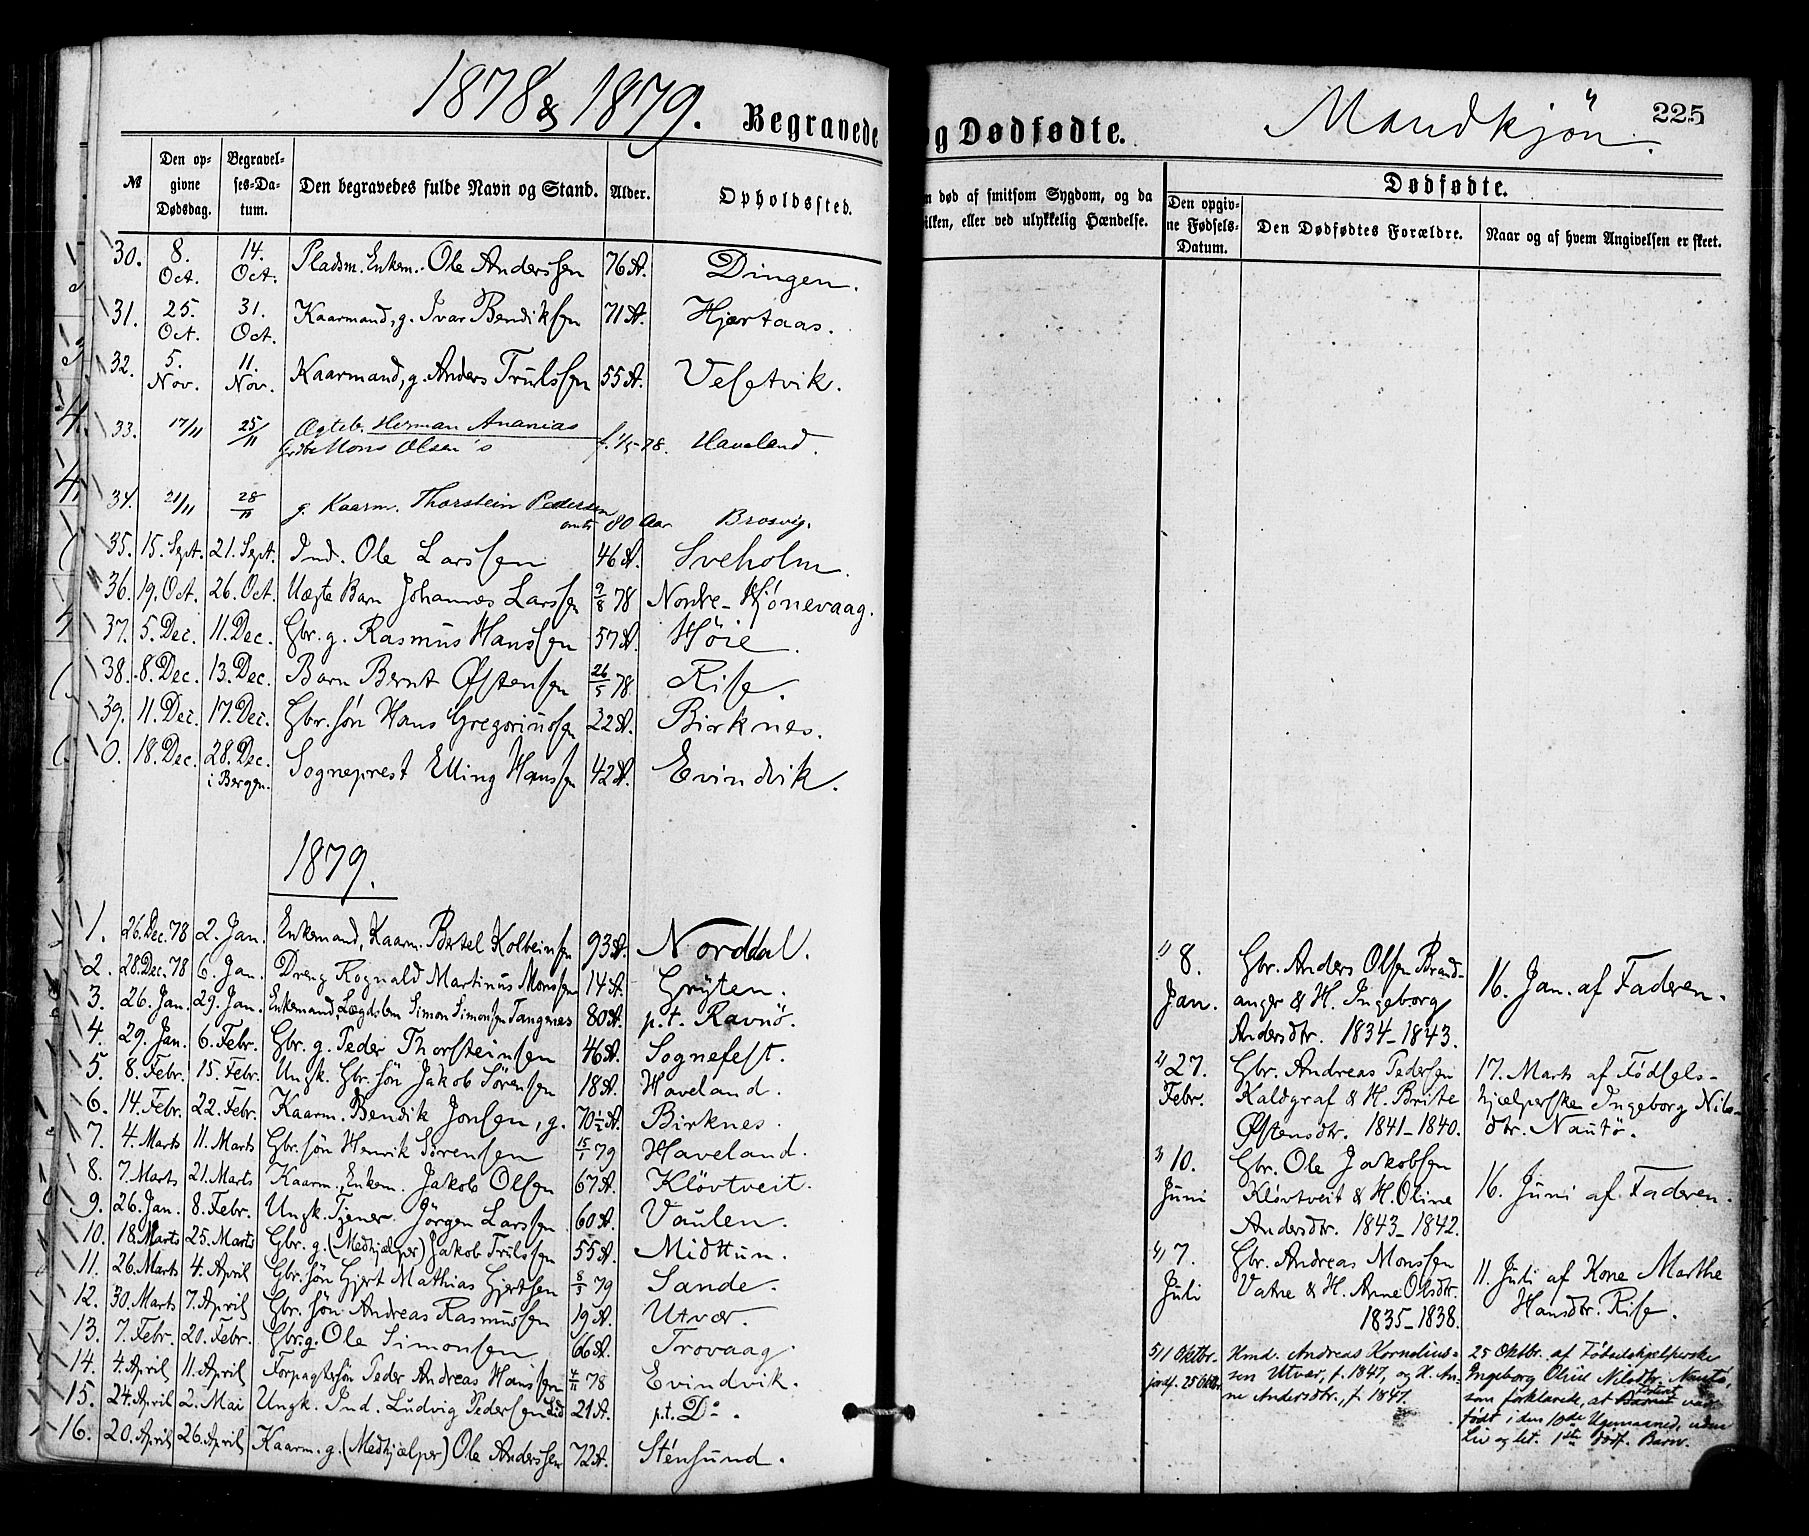 1878 & 1879.
Begravede
og Dødfødte.
Mandkjøn.
225
№ Den opgivne Dødsdag. Begravelses-Datum. Den begravedes fulde Navn og Stand. Alder. Opholdssted.
n død af smitsom Sygdom, og da
ilken, eller ved ulykkelig Hændelse.
Dødfødte.
Den opgivne Fødsels-Datum. Den Dødfødtes Forældre. Naar og af hvem Angivelsen er skeet.
30. 8. Oct. 14. Oct. Pladsm. Enkem. Ole Anderssen 76 A. Dingen.
31. 25. Oct. 31. Oct. Kaarmand, g. Ivar Bendiksen 71 A. Hjartaas.
32. 5. Nov. 11. Nov. Kaarmand, g. Anders Trulssen 55 A. Vesetvik.
33. 17/11 25/11 Ægteb. Herman Ananias
Grdbr Mons Olsen's f. 1/5-78. Haveland.
34. 21/11 28/11 g. Kaarm. Thorstein Pedersen
omtr 80 Aar Brosvig.
35. 15. Sept. 21. Sept. Ind. Ole Larssen 46 A. Sveholm.
36. 19. Oct. 26. Oct. Uægte Barn Johannes Larssen 9/8 78 Nordre-Hjønevaag.
37. 5. Dec. 11. Dec. Gbr. g. Rasmus Hanssen 57 A. Høie.
38. 8. Dec. 13. Dec. Barn Bernt Østensen 26/5 78 Rise.
39. 11. Dec. 17. Dec. Gbr. søn Hans Gregoriussen 22 A. Birknes.
0. 18. Dec. 28. Dec. i Bergen. Sogneprest Elling Hanssen 42 A. Evindvik.
1879.
1. 26. Dec. 78 2. Jan. Enkemand, Kaarm. Bertel Kolbeinsen 93 A. Norddal.
2. 28. Dec. 78 6. Jan. Dreng Rognald Martinus Monssen 14 A. Gryten.
3. 26. Jan. 29. Jan. Enkemand Lægdslem Simon Simonsen Tangenes 80 A. p.t. Ravnø.
4. 29. Jan. 6. Febr. Gbr. g. Peder Thorsteinsen 46 A. Sognefest.
5. 8. Febr. 15. Febr. Ungk. Gbr. søn Jakob Sørensen 18 A. Haveland.
6. 14. Febr. 22. Febr. Kaarm. Bendik Jonsen, g. 70½ A. Birknes.
7. 4. Marts 11. Marts Gbr. søn Henrik Sørensen 15/1 79 Haveland.
8. 7. Marts 21. Marts Kaarm., Enkem. Jakob Olsen 67 A. Kløvtveit.
9. 26. Jan. 8. Febr. Ungk. Tjener Jørgen Larssen 60 A. Vaulen.
10. 18. Marts 25. Marts Gbr. g. (Medhjælper) Jakob Trulssen 55 A. Midttun.
11. 26. Marts 4. April Gbr. søn Hjert Mathias Hjertsen 8/3 79 Sande.
12. 30. Marts 7. April Gbr. søn Andreas Rasmussen 19 A. Utvær.
13. 7. Febr. 20. Febr. Gbr. g. Ole Simonsen 66 A. Trovaag.
14. 4. April 11. April Forpagtersøn Peder Andreas Hanssen 4/11 78 Evindvik.
15. 24. April 2. Mai Ungk. Ind. Ludvig Pedersen 21 A. p.t. Do.
16. 20. April 26. April Kaarm. g. (Medhjælper) Ole Anderssen 72 A. Stensund.
1) 8. Jan. Gbr. Anders Olsen Brand-
anger & H. Ingeborg
Andersdtr. 1834-1843. 16. Jan. af Faderen.
2) 27. Febr. Gbr. Andreas Pedersen
Kaldgraf & H. Brite
Østensdtr. 1841-1840. 17. Marts af Fødsels-
hjælperske Ingeborg Nils-
dtr. Nautø.
3) 10. Juni Gbr. Ole Jakobsen
Kløvtveit & H. Oline
Andersdtr. 1843-1842. 16. Juni af Faderen.
4) 7. Juli Gbr. Andreas Monssen
Vatne & H. Anne Olsdtr.
1835-1838. 11. Juli af Kone Marthe
Hansdtr. Rise.
5) 1 Oktbr. jordf. 25 Oktbr. Hmd. Andreas Kornelius-
sen Utvær, f. 1847, og H. An-
ne Andersdtr., f. 1847. 25 Oktbr. af Fødselshjælperske
Ingeborg Oline Nilsdtr. Nautø,
som forklarede, at Barnet var
født i den 10de Ugemaaned, uden
Liv og let. 1ste dødf. Barn.